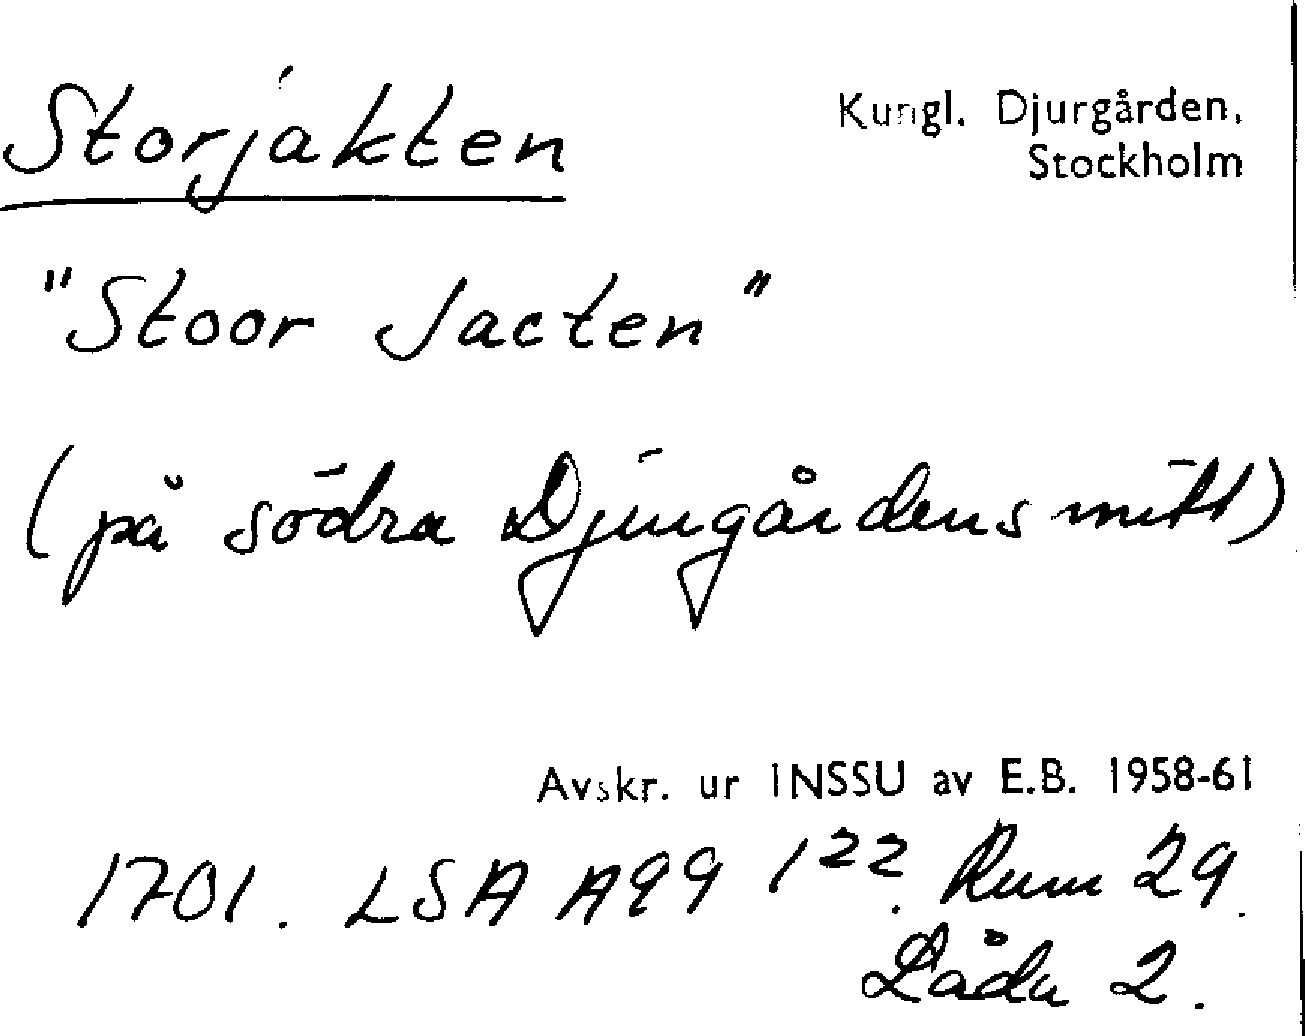 Storjakten
Kungl. Djurgården,
Stockholm
"Stoor Jacten"
(på södra Djurgårdens mitt)
Avskr. ur INSSU av E.B. 1958-61
1701. LSA A99 1²². Rum 29.
Låda 2.